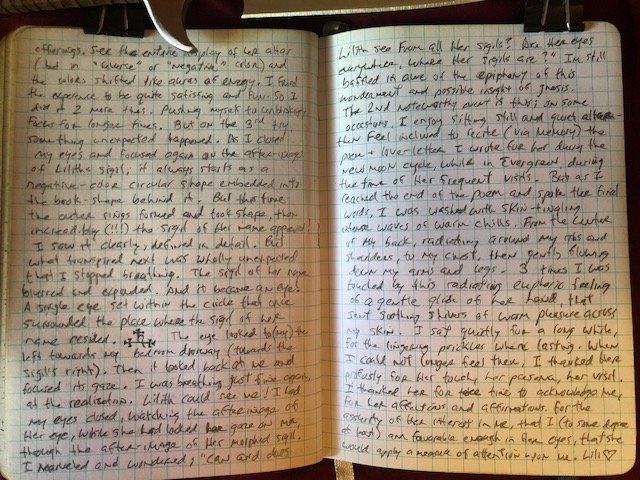 offerings. See the entire display of her altar
(but in "reverse" or "negative" color) and
the colors shifted like auras of energy. I found
the experience to be quite satisfing and fun. So I
did it 2 more times. Pushing myself to unblinkingly
focus for longer times. But on the 3rd try
something unexpected happened. As I closed
my eyes and focused again on the after-image
of Liliths sigil, it always starts as a
negative-color circular shape embedded into
the book-shape behind it. But this time
the outer rings formed and took shape, then
incredibly (!!!) the sigil of Her name appeared!
I saw it clearly, defined in detail. But
what transpired next was wholly unexpected
that I stopped breathing. The sigil of her name
blurred and expanded. And it became an eye!
A single eye, set within the circle that once
surrounded the place where the sigil of her
name resided. The eye looked to (my) the
left towards my bedroom doorway (towards the
sigil's right). Then it looked back at me and
focused its gaze. I was breathing just fine again,
at the realization. Lilith could see me! I had
my eyes closed, watching the after image of
Her eye, while she had locked her gaze on me,
though the after-image of Her morphed sigil.
I marveled and wondered; "Can and does
Lilith see From all Her sigils? Are Her eyes
everywhere, where Her sigils are?" I'm still
baffled in awe of the epiphany of this
wonderment and possible insight of gnosis.
The 2nd noteworthy event is this; on some
occasions, I enjoy sitting still and quiet
then Feel inclined to recite (via Memory) the
poem + love-letter I wrote for her during the
new moon cycle, while in Evergreen during
the time of Her frequent visits. But as I
reached the end of the poem and spoke the final
words, I was washed with skin-tingling
intense waves of warm chills. From the center
of my back, radiating around my ribs and
shoulders, to my chest, then gently flowing
down my arms and legs. 3 times I was
touched by this radiating euphoric feeling
of a gentle glide of her hand, that
sent soothing shivers of warm pleasure across
my skin. I sat quietly for a long while,
for the lingering prickles where lasting. When
I could not longer feel them, I thanked her
profusly for Her touch, her persona, her visit.
I thanked her for time to acknowledge me,
for her affections and affirmations. for the
assurety of her interest in me, that I (to some degree
at least) am favorable enough in Her eyes, that she
would apply a measure of attention upon me. Lili♡